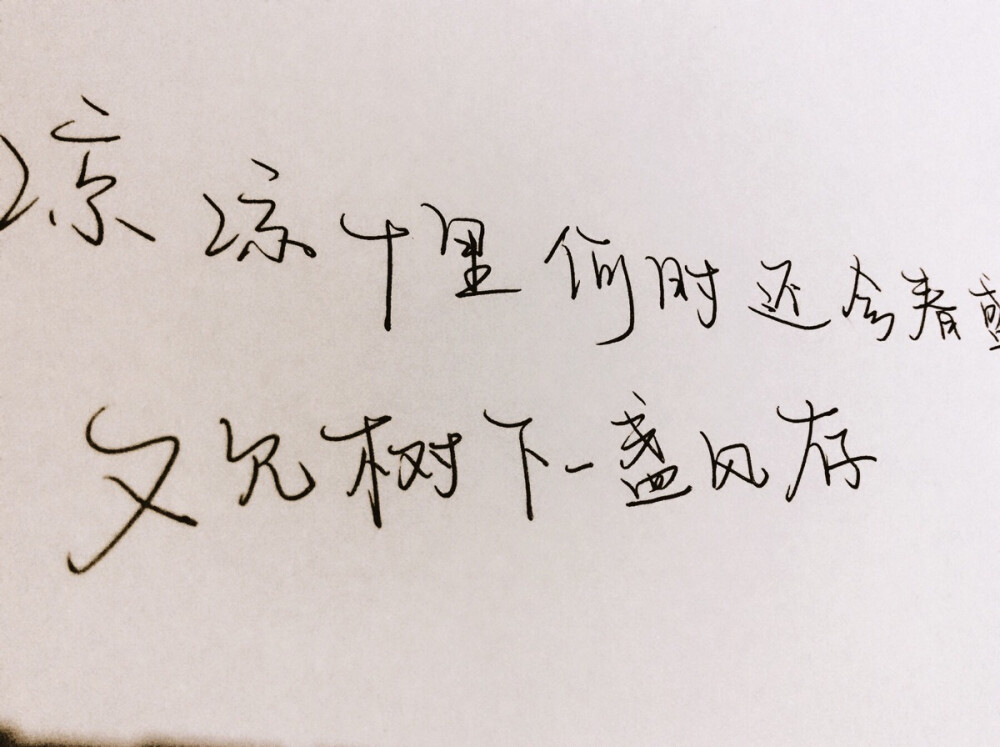 凉凉十里何时还会春盛
又见树下一盏风存